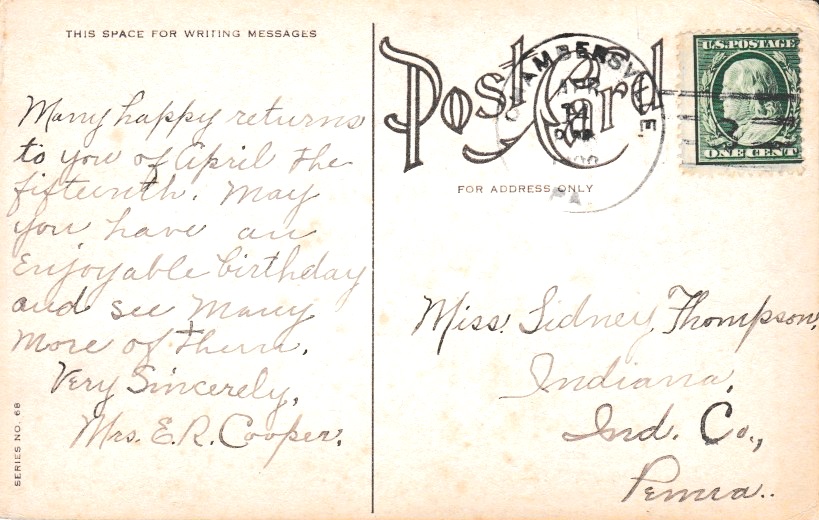 THIS SPACE FOR WRITING MESSAGES
Many happy returns
to you of April the
fifteenth. May
you have an
enjoyable birthday
and see many
more of them.
Very Sincerely,
Mrs. E.R. Cooper.
SERIES NO. 68
Post Card
FOR ADDRESS ONLY
CHAMBERSVILLE
APR
PA.
U.S. POSTAGE
ONE CENT
Miss. Sidney Thompson,
Indiana,
Ind. Co.,
Penna..